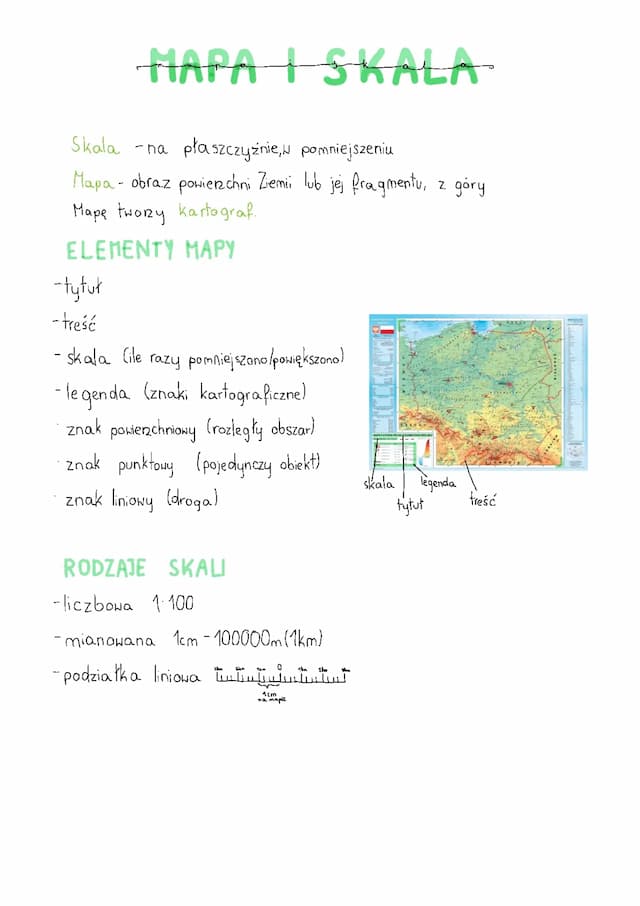 MAPA I SKALA
mapa i skala
Skala - na płaszczyźnie, w pomniejszeniu
Mapa - obraz powierzchni Ziemi lub jej fragmentu, z góry
Mapę tworzy kartograf.
ELEMENTY MAPY
- tytuł
- treść
- skala (ile razy pomniejszono/powiększono)
- legenda (znaki kartograficzne)
· znak powierzchniowy (rozległy obszar)
· znak punktowy (pojedynczy obiekt)
· znak liniowy (droga)
skala
legenda
tytuł
treść
RODZAJE SKALI
- liczbowa 1:100
- mianowana 1cm - 100000m (1km)
- podziałka liniowa
0
1cm
na mapie